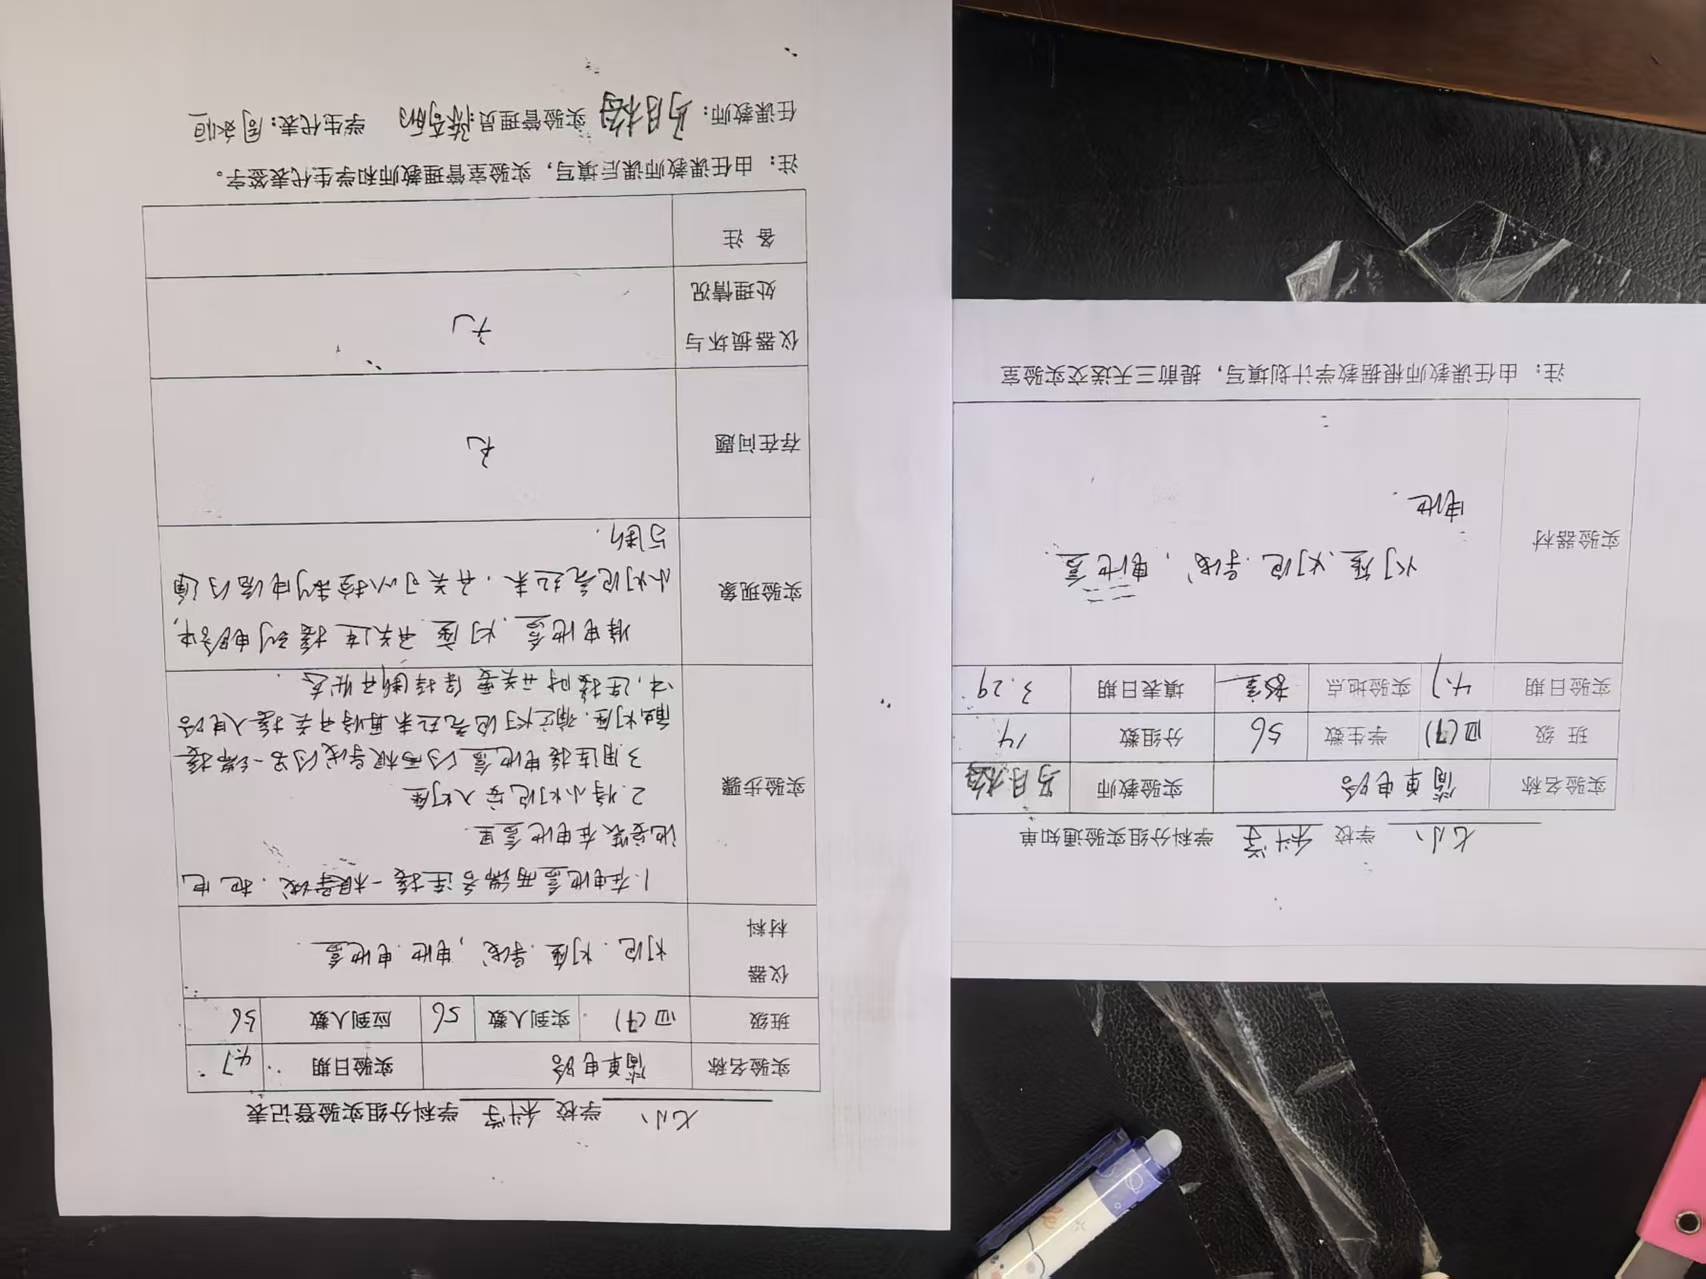 七小 学校 科学 学科分组实验登记表
实验名称 简单电路 实验日期 4.7
班级 四(7) 实到人数 56 应到人数 56
仪器
材料
灯泡.灯座.导线,电池.电池盒.
实验步骤
1.在电池盒两端各连接一根导线.把电
池安装在电池盒里.
2.将小灯泡安入灯座
3.用连接电池盒的两根导线的另一端接
触灯座.确定灯泡亮起来再将开关接入电路
4.连接时开关要保持断开状态.
实验现象
将电池盒.灯座.开关连接到电路中,
小灯泡亮起来.开关可以控制电流的通
与断.
存在问题 无
仪器损坏与
处理情况
无
备 注
注: 由任课教师课后填写,实验室管理教师和学生代表签字。
任课教师: 马月梅 实验管理员: 学生代表: 周永恒
七小 学校 科学 学科分组实验通知单
实验名称 简单电路 实验教师 马月梅
班 级 四(7) 学生数 56 分组数 14
实验日期 4.7 实验地点 教室 填表日期 3.29
实验器材
灯座.灯泡.导线,电池盒.
电池.
注: 由任课教师根据教学计划填写,提前三天送交实验室